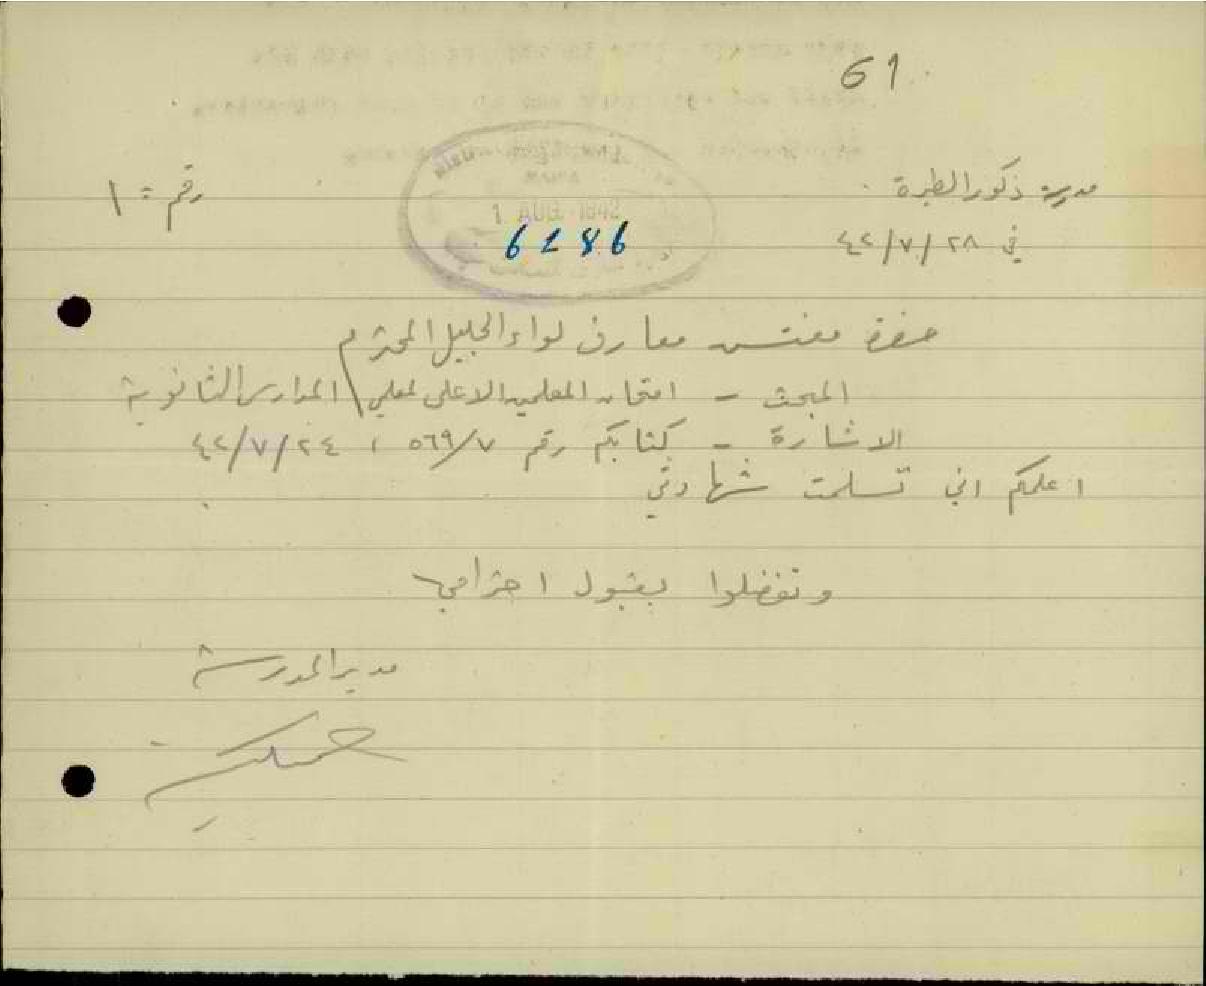 61
مدرسة ذكور الطيرة
رقم : ١
في ٢٨ / ٧ / ٤٢
1 AUG 1942
6286
حضرة مفتش معارف لواء الجليل المحترم
المبحث - امتحان المعلمين الاعلى لمعلمي المدارس الثانوية
الاشارة - كتابكم رقم ٥٦٩/٧ ، ٤٢/٧/٢٤
اعلمكم اني تسلمت شهادتي
وتفضلوا بقبول احترامي
مدير المدرسة